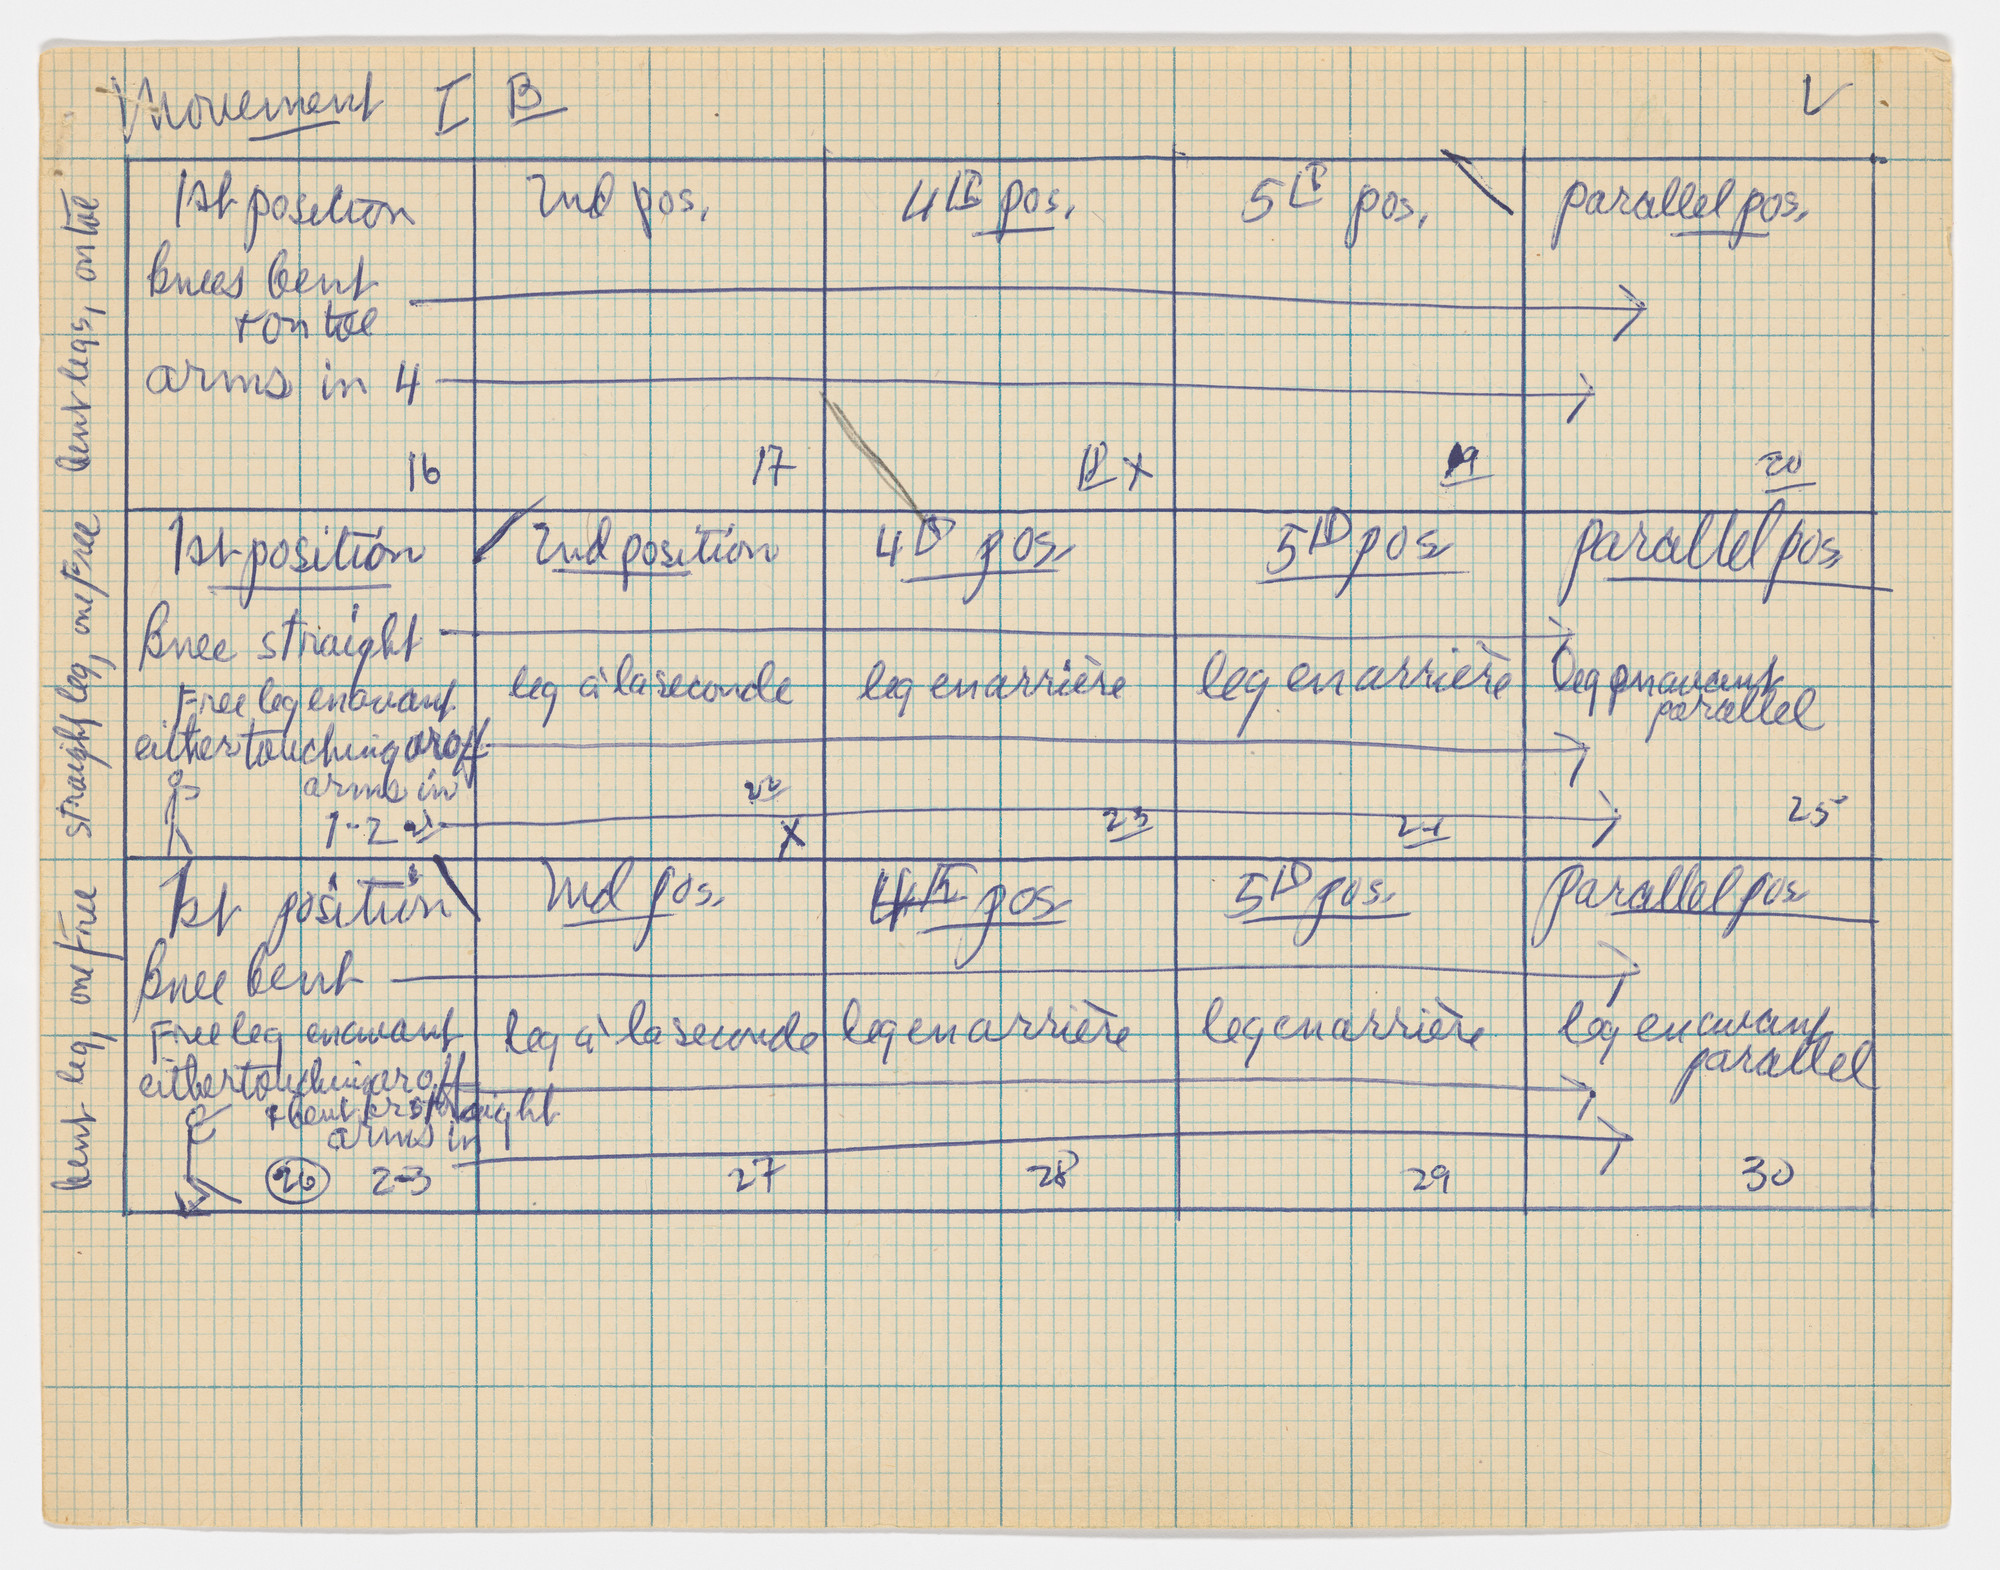 Movement I B
V
bent legs, on toe
1st position
knees bent
+ on toe
arms in 4
16
2nd pos.
17
4th pos.
18 x
5th pos.
19
parallel pos.
20
straight leg, one free
1st position
knee straight
Free leg en avant
either touching or off
arms in
1-2 21
2nd position
leg à la seconde
22
x
4th pos.
leg en arrière
23
5th pos
leg en arrière
24
parallel pos.
leg en avant
parallel
25
bent leg, one free
1st position
knee bent
Free leg en avant
either touching or off
+ bent or straight
arms in
26 2-3
2nd pos.
leg à la seconde
27
4th pos
leg en arrière
28
5th pos.
leg en arrière
29
parallel pos
leg en avant
parallel
30